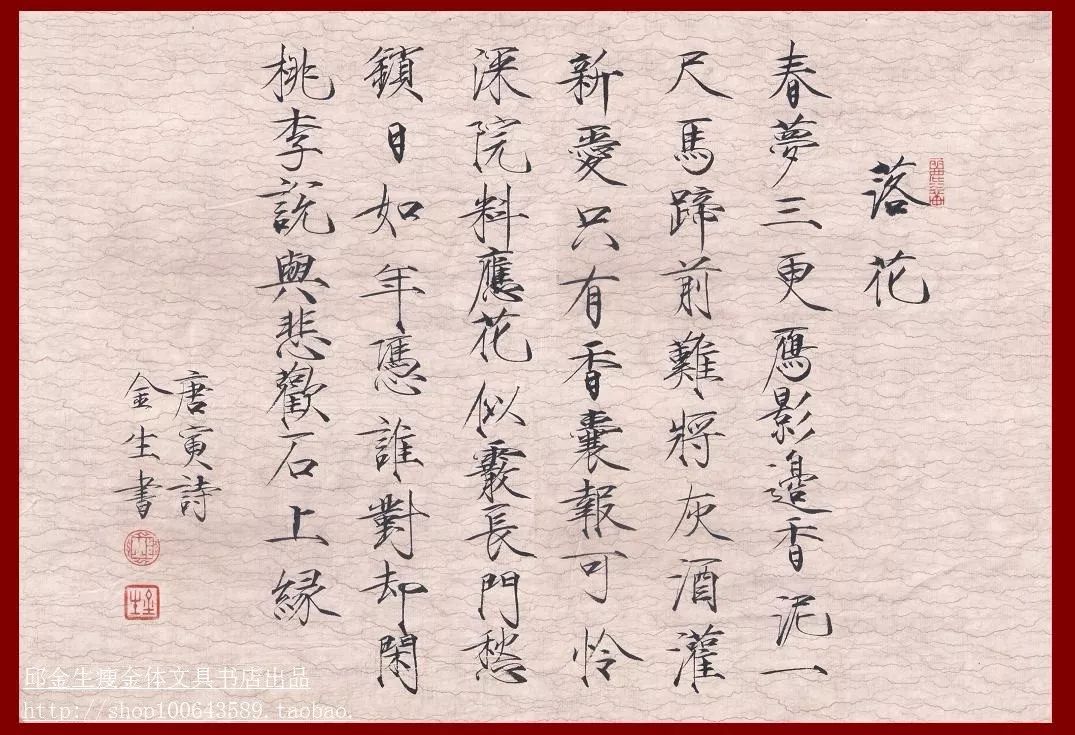 落花
春夢三更鴈影邊香泥一
尺馬蹄前難將灰酒灌
新愛只有香囊報可怜
深院料應花似霰長門愁
鎖日如年憑誰對却閑
桃李說與悲歡石上緣
唐寅詩
金生書
邱金生瘦金体文具书店出品
http://shop100643589.taobao.